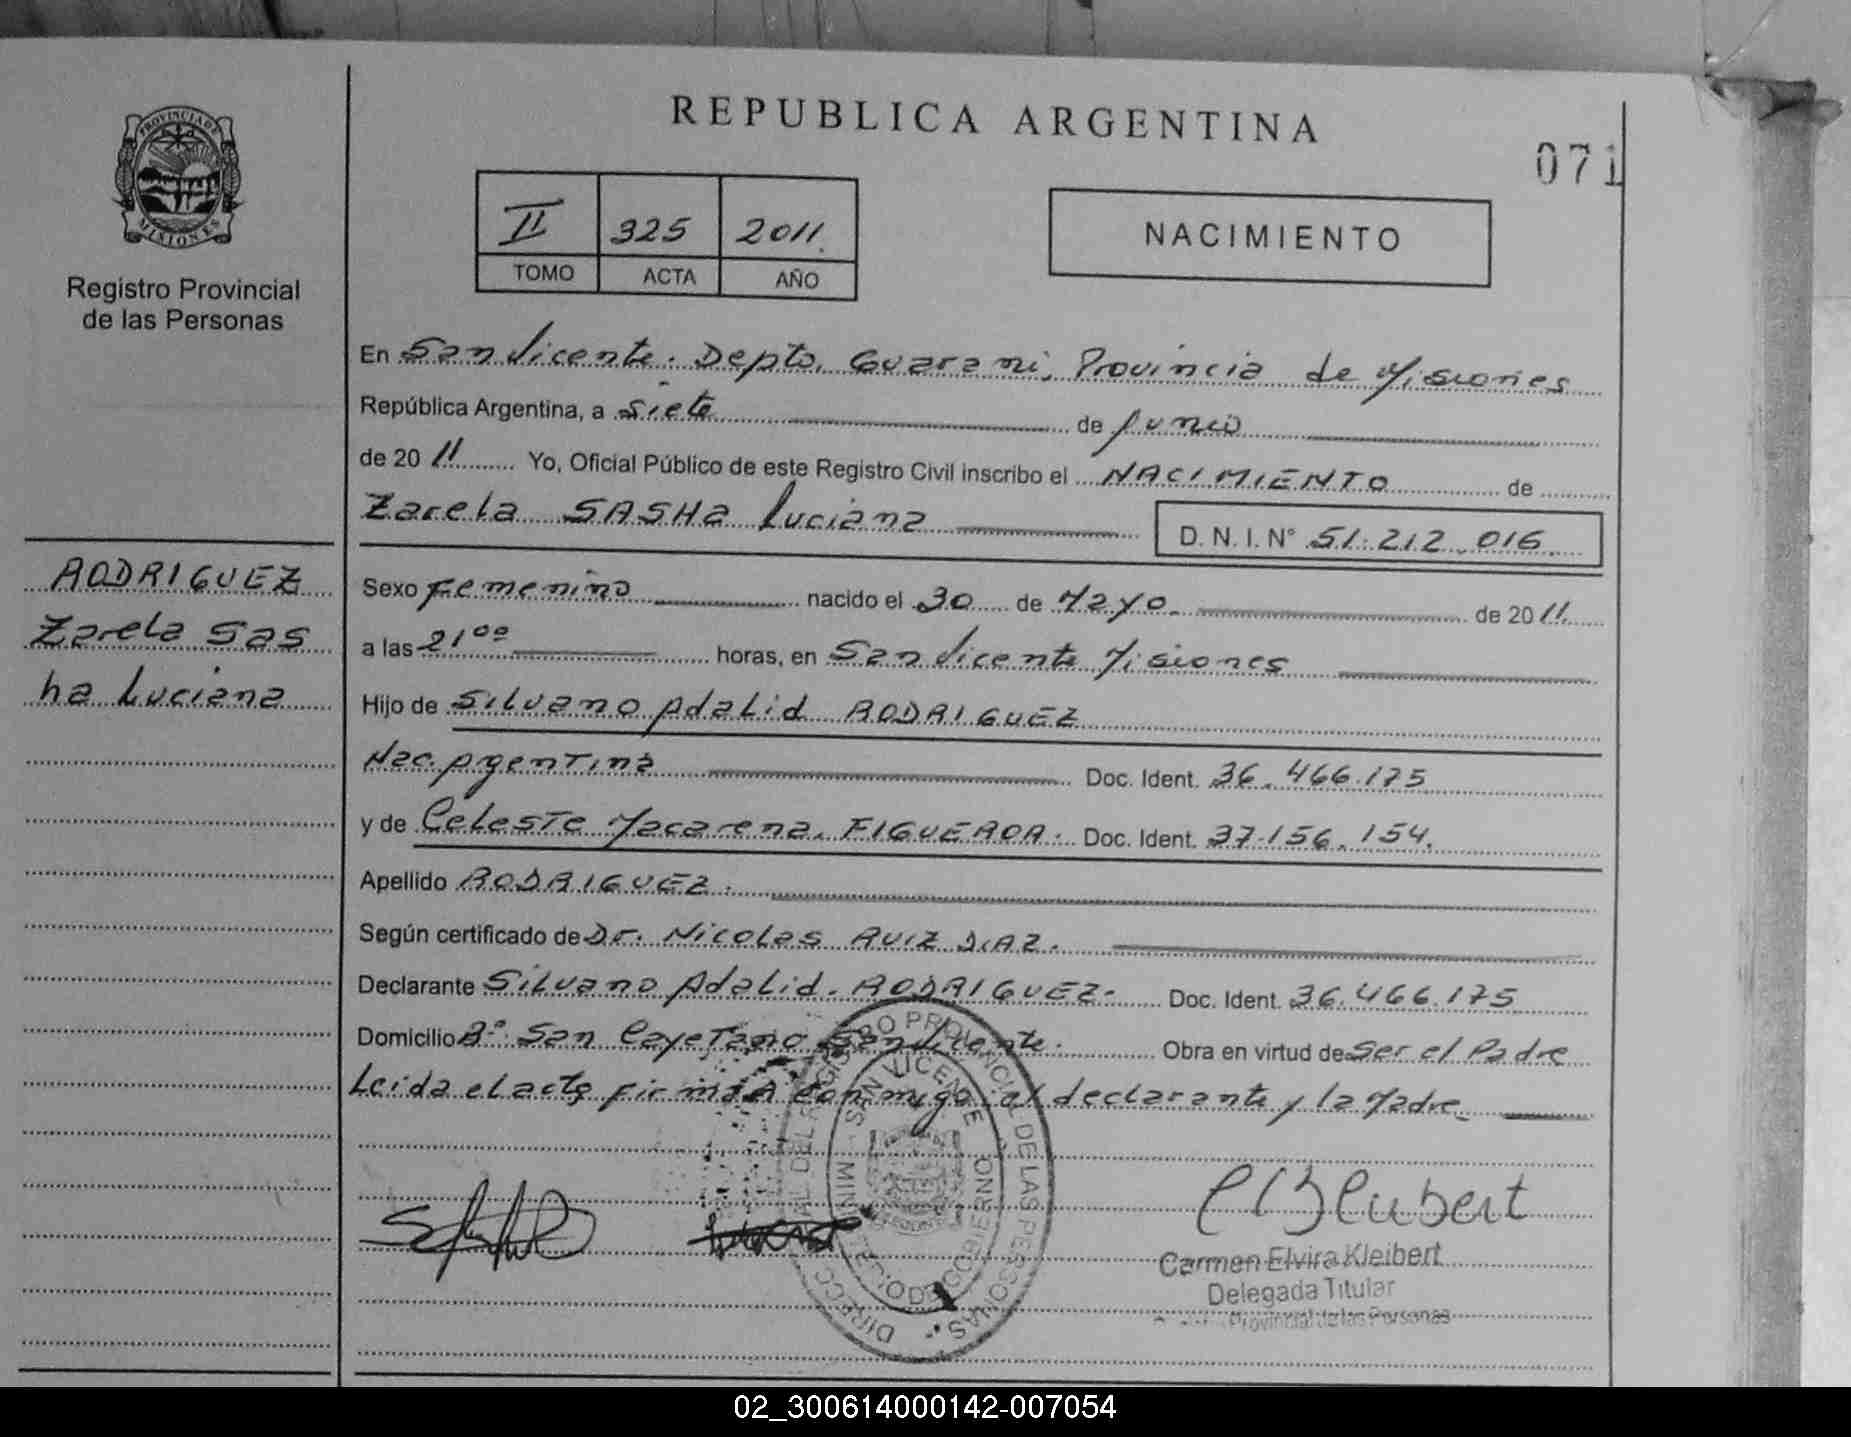 REPUBLICA ARGENTINA
071
PROVINCIA DE
MISIONES
Registro Provincial
de las Personas
II 325 2011
TOMO ACTA AÑO
NACIMIENTO
En San Vicente. Depto. Guarani, Provincia de Misiones
República Argentina, a siete de Junio
de 2011 Yo, Oficial Público de este Registro Civil inscribo el NACIMIENTO de
Zarela SASHa Luciana
D. N. I. N° 51.212.016
RODRIGUEZ
Zarela Sas
ha Luciana
Sexo Femenino nacido el 30 de Mayo de 2011
a las 21 00 horas, en San Vicente Misiones
Hijo de Silvano Adalid RODRIGUEZ
Nac. Argentina Doc. Ident. 36.466.175
y de Celeste Macarena. FIGUEROA. Doc. Ident. 37.156.154.
Apellido RODRIGUEZ.
Según certificado de Dr. Nicolas RUIZ DIAZ.
Declarante Silvano Adalid. RODRIGUEZ- Doc. Ident. 36.466.175
Domicilio B° San Cayetano San Vicente. Obra en virtud de Ser el Padre
Leida el acta firman conmigo el declarante y la Madre
DEL REGISTRO PROVINCIAL DE LAS PERSONAS
SAN VICENTE
Carmen Elvira Kleibert
Delegada Titular
Provincial de las Personas
02_300614000142-007054